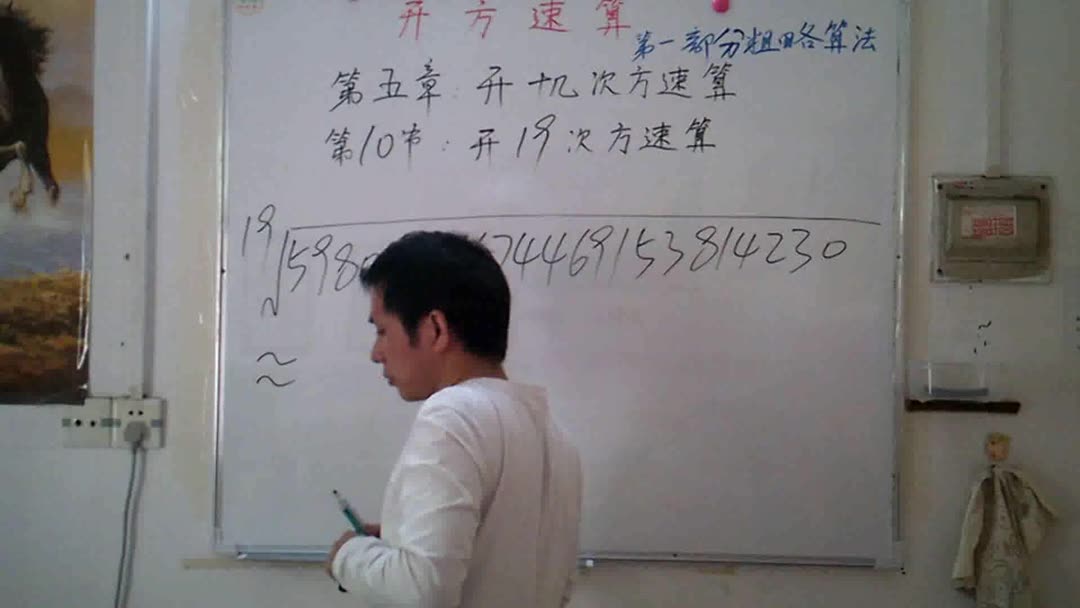 开方速算
第一部分粗略各算法
第五章:开十几次方速算
第10节:开19次方速算
19
√5980 74469153814230
≈